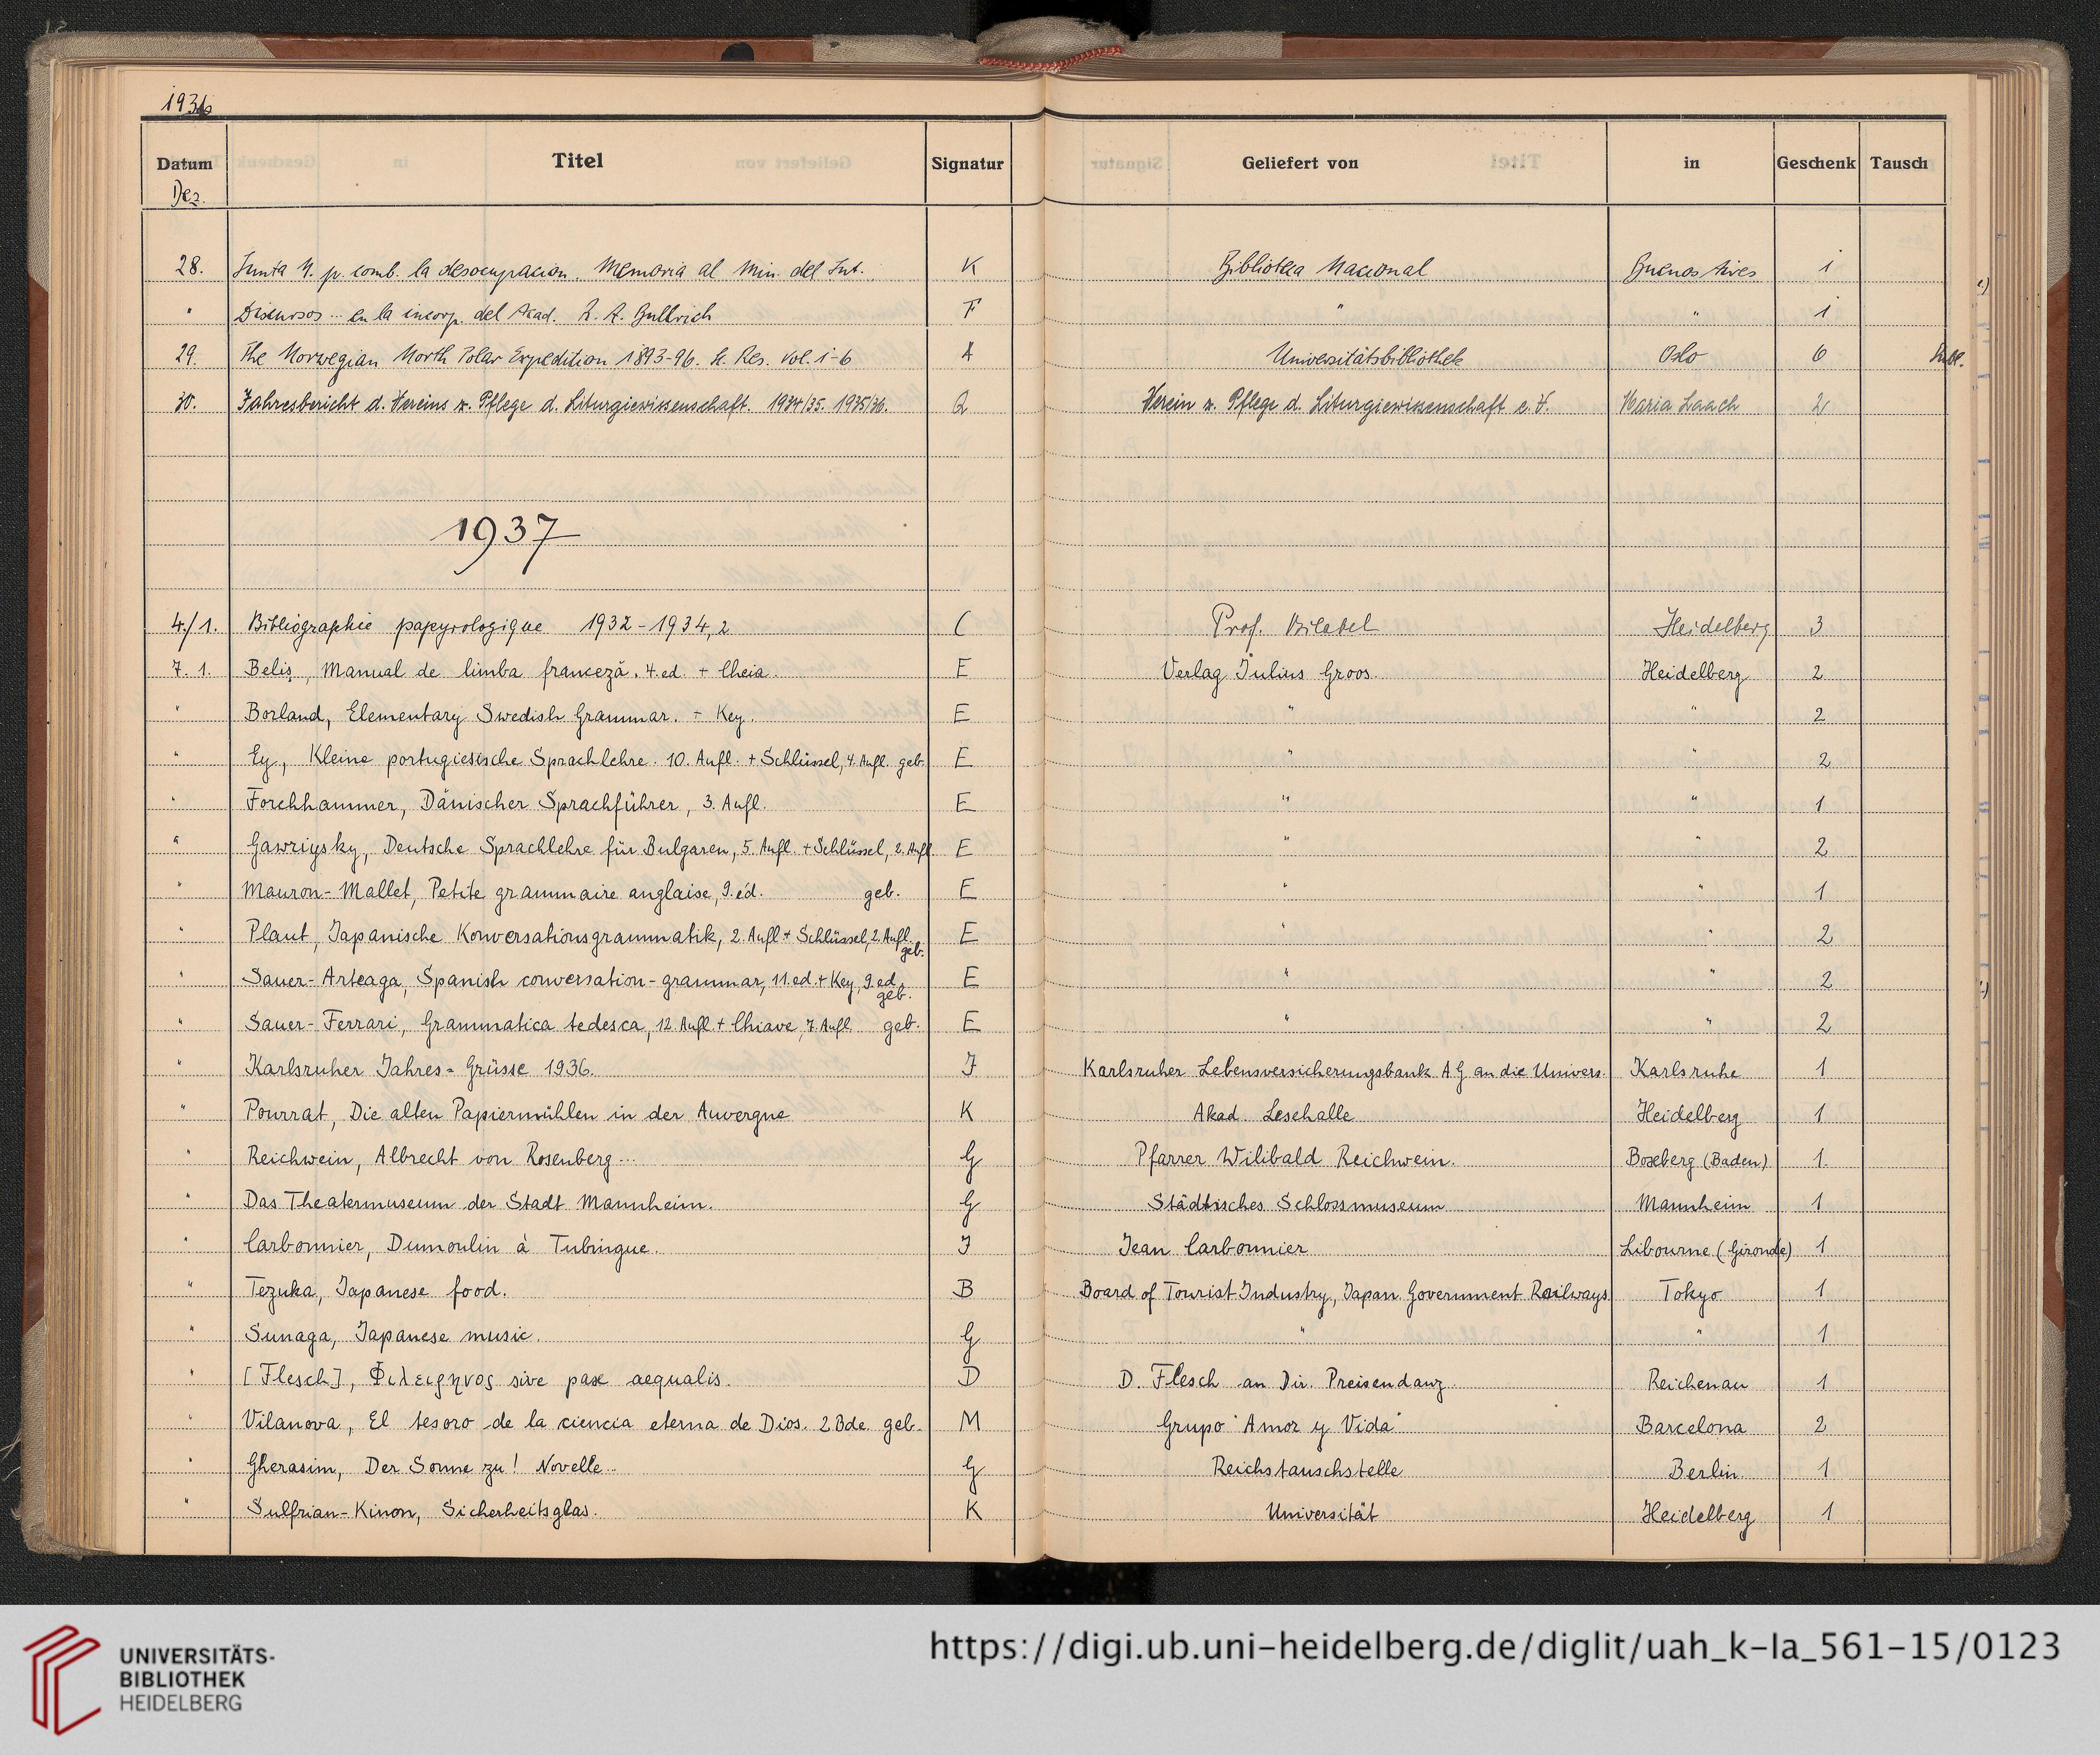 1936
Datum Titel Signatur Geliefert von in Geschenk Tausch
Dez.
28. Junta N. p. comb. la desocupacion. Memoria al Min. del Int. K Biblioteca Nacional Buenos Aires 1
" Discursos ... en la incorp. del Acad. R. A. Bullrich F " " 1
29. The Norwegian North Polar Expedition 1893-96. Sc. Res. Vol. 1-6 A Universitätsbibliothek Oslo 6
30. Jahresbericht d. Vereins z. Pflege d. Liturgiewissenschaft. 1934/35. 1935/36. Q Verein z. Pflege d. Liturgiewissenschaft e. V. Maria Laach 2
1937
4./1. Bibliographie papyrologique 1932-1934,2 C Prof. Bilabel Heidelberg 3
7. 1. Beliş, Manual de limba franceză. 4. ed. + Cheia. E Verlag Julius Groos. Heidelberg 2
" Borland, Elementary Swedish Grammar. + Key. E " " 2
" Ey, Kleine portugiesische Sprachlehre. 10. Aufl. + Schlüssel, 4. Aufl. geb. E " " 2
" Forchhammer, Dänischer Sprachführer, 3. Aufl. E " " 1
" Gawriysky, Deutsche Sprachlehre für Bulgaren, 5. Aufl. + Schlüssel, 2. Aufl. E " " 2
" Mauron-Mallet, Petite grammaire anglaise, 9. éd. geb. E " " 1
" Plaut, Japanische Konversationsgrammatik, 2. Aufl + Schlüssel, 2. Aufl. geb. E " " 2
" Sauer-Arteaga, Spanish conversation-grammar, 11. ed. + Key, 9. ed. geb. E " " 2
" Sauer-Ferrari, Grammatica tedesca, 12. Aufl. + Chiave, 7. Aufl. geb. E " " 2
" Karlsruher Jahres-Grüsse 1936. J Karlsruher Lebensversicherungsbank AG an die Univers. Karlsruhe 1
" Pourrat, Die alten Papiermühlen in der Auvergne K Akad. Lesehalle Heidelberg 1
" Reichwein, Albrecht von Rosenberg... G Pfarrer Wilibald Reichwein. Boxberg (Baden) 1.
" Das Theatermuseum der Stadt Mannheim. G Städtisches Schlossmuseum Mannheim 1
" Carbonnier, Dumoulin à Tubingue. J Jean Carbonnier Libourne (Gironde) 1
" Tezuka, Japanese food. B Board of Tourist Industry, Japan. Government Railways. Tokyo 1
" Sunaga, Japanese music. G " " 1
" [Flesch], Φιλειρηνος sive pax aequalis. D D. Flesch an Dir. Preisendanz Reichenau 1
" Vilanova, El tesoro de la ciencia eterna de Dios. 2 Bde. geb. M Grupo "Amor y Vida" Barcelona 2
" Gherasim, Der Sonne zu! Novelle.. G Reichstauschstelle Berlin 1
" Sulfrian-Kinon, Sicherheitsglas. K Universität Heidelberg 1
UNIVERSITÄTS-
BIBLIOTHEK
HEIDELBERG
https://digi.ub.uni-heidelberg.de/diglit/uah_k-Ia_561-15/0123